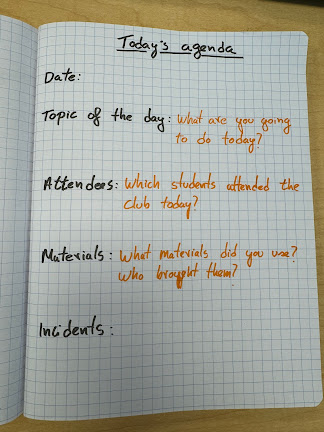 Today's agenda
Date:
Topic of the day: What are you going
to do today?
Attendees: Which students attended the
club today?
Materials: What materials did you use?
Who brought them?
Incidents: